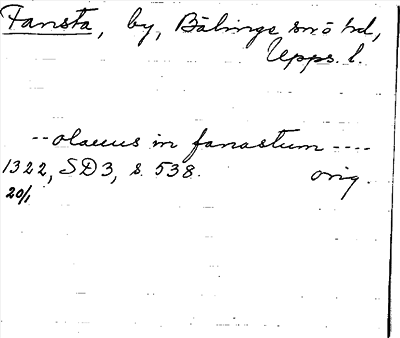 Fansta, by, Bälinge snö hd,
Upps. l.
-- olauus in fanastum ----
1322, SD3, s. 538. orig.
20/1